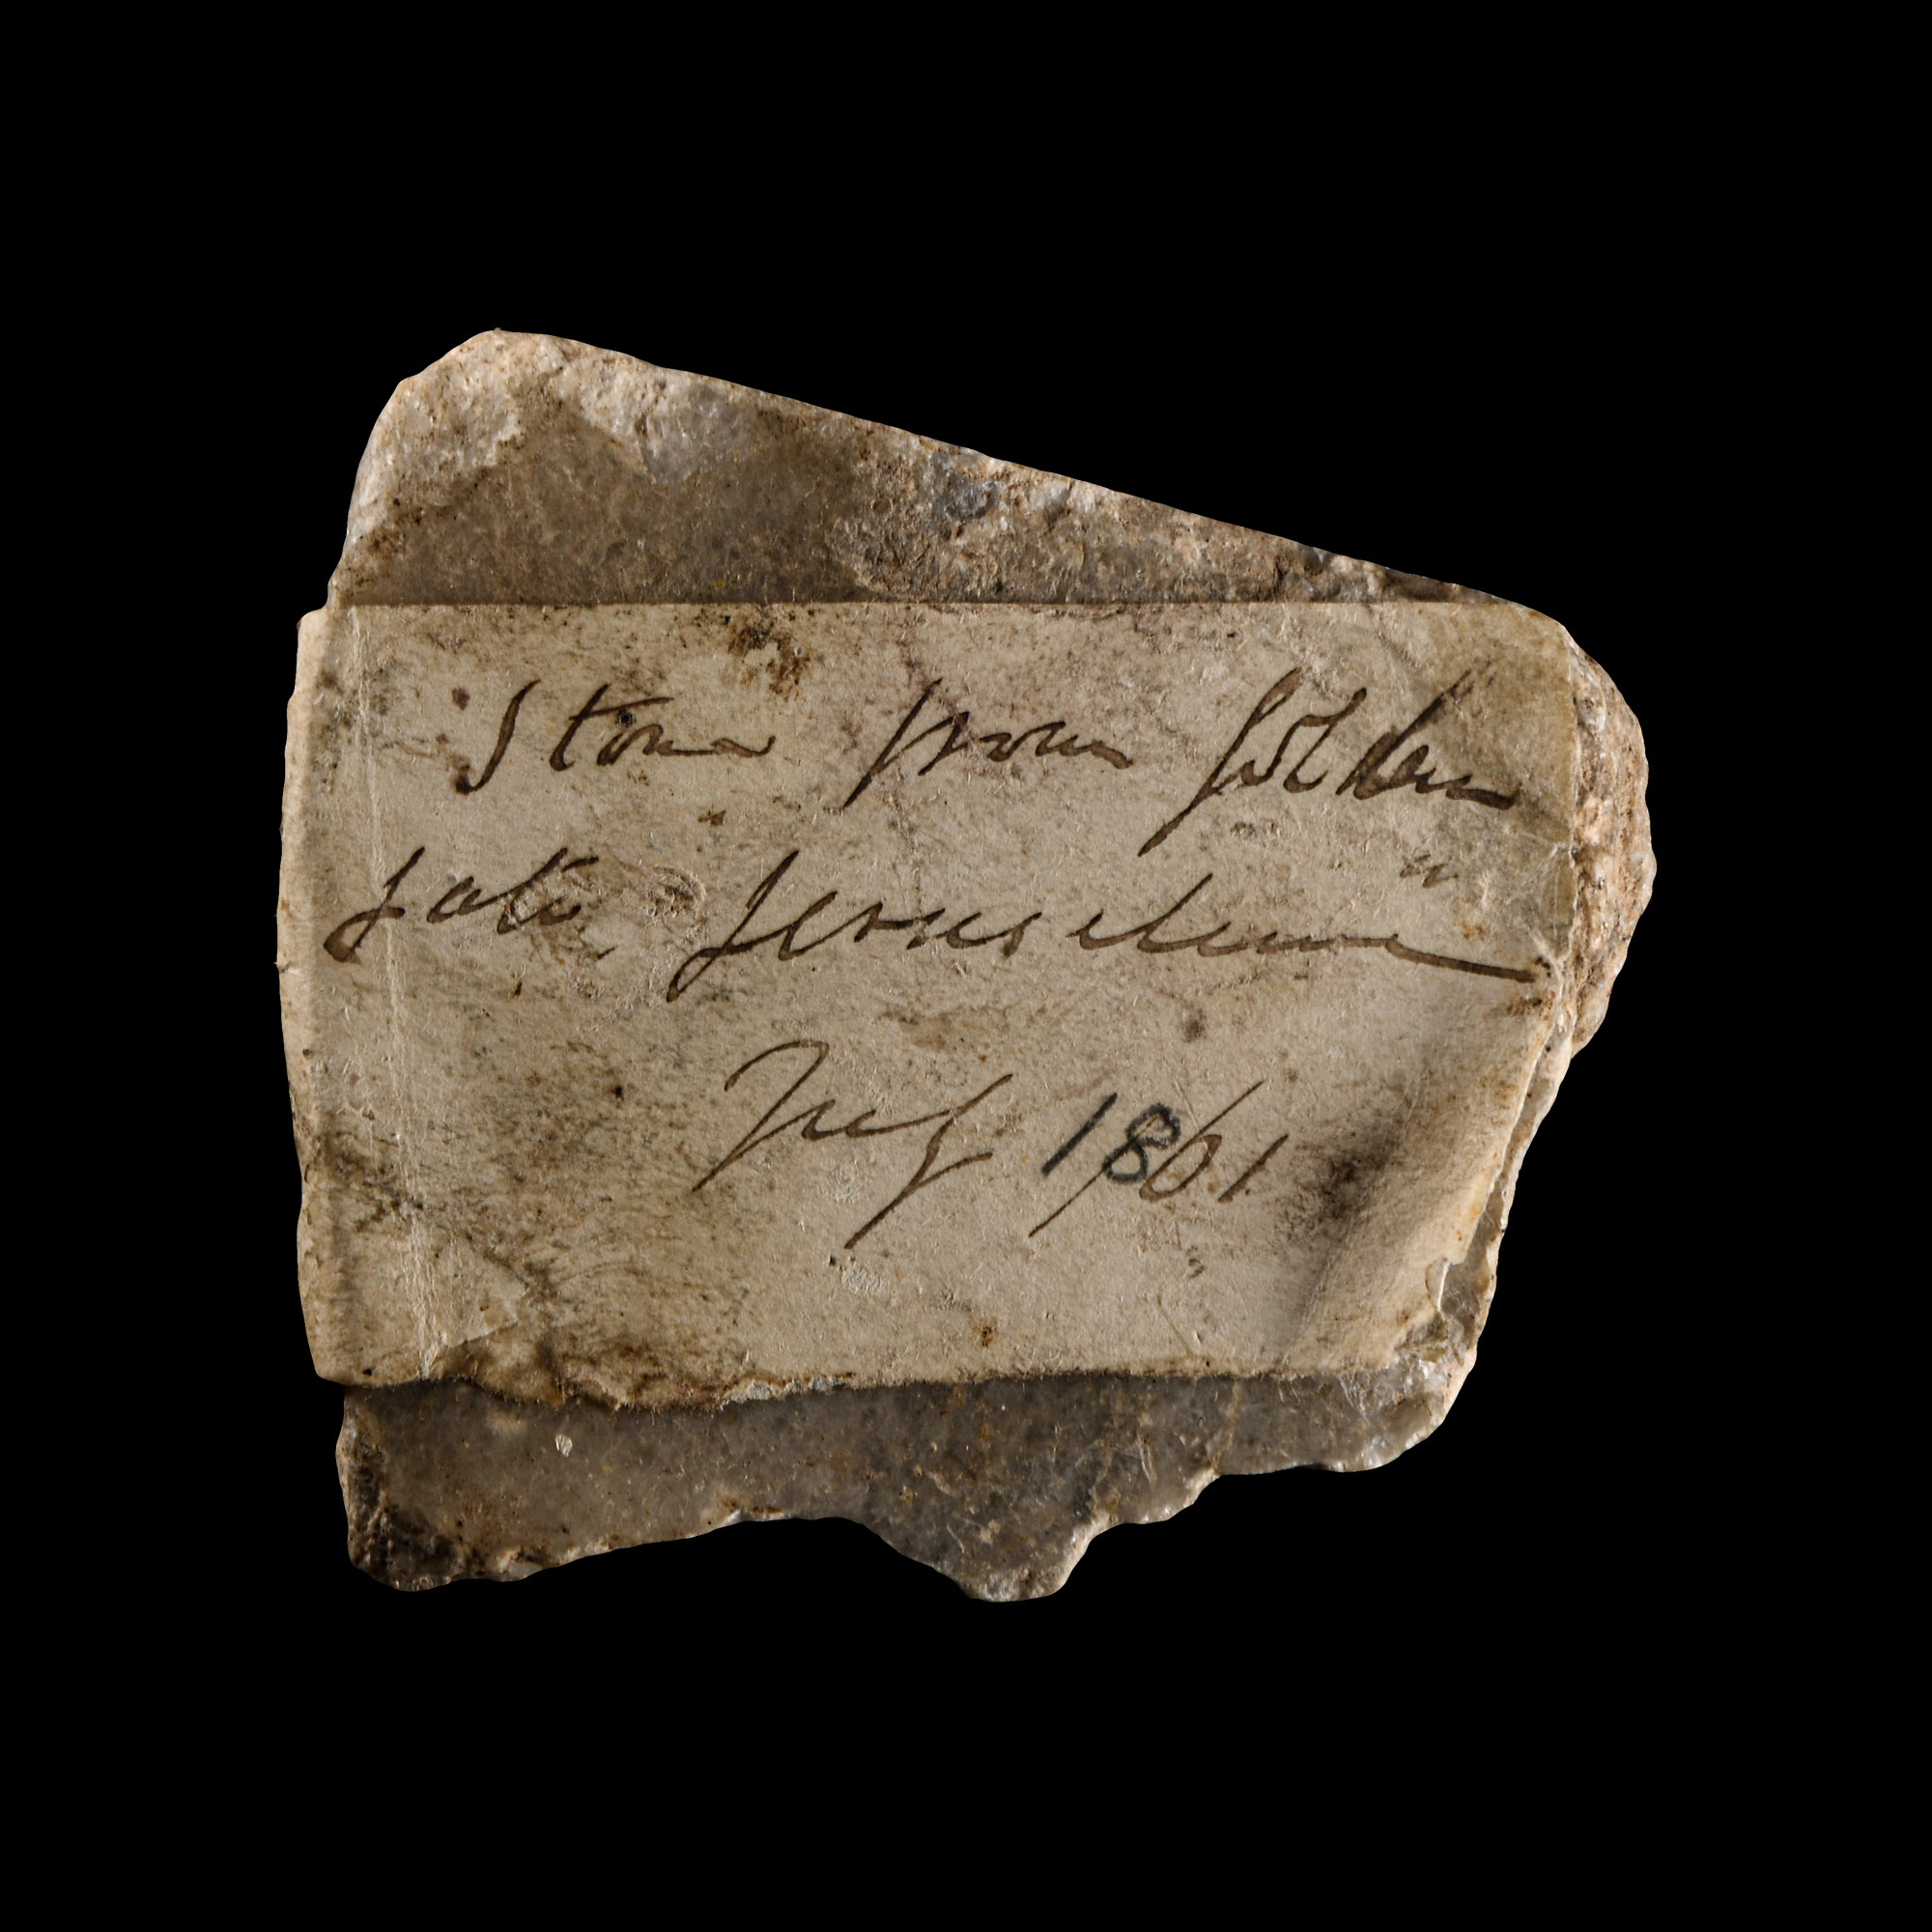 Stone from Golden
Gate Jerusalem
July 1861